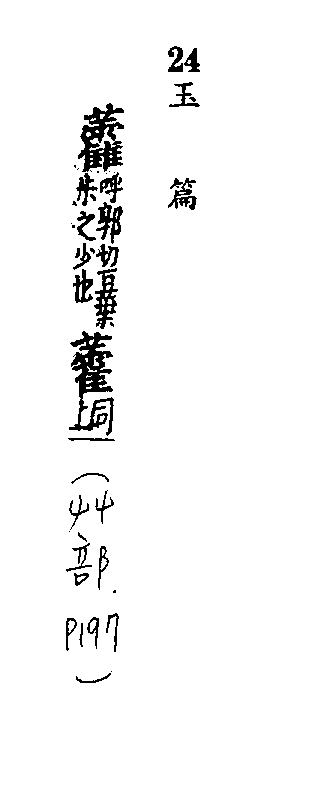 24
玉篇
𧆑呼郭切豆葉
尗之少也
藿同
上
(艸部.P197)